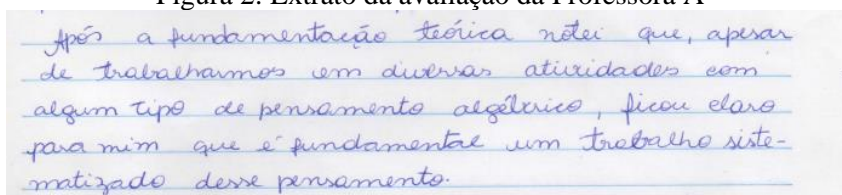 Figura 2: Extrato da avaliação da Professora A
Após a fundamentação teórica notei que, apesar
de trabalharmos em diversas atividades com
algum tipo de pensamento algébrico, ficou claro
para mim que é fundamental um trabalho siste-
matizado desse pensamento.